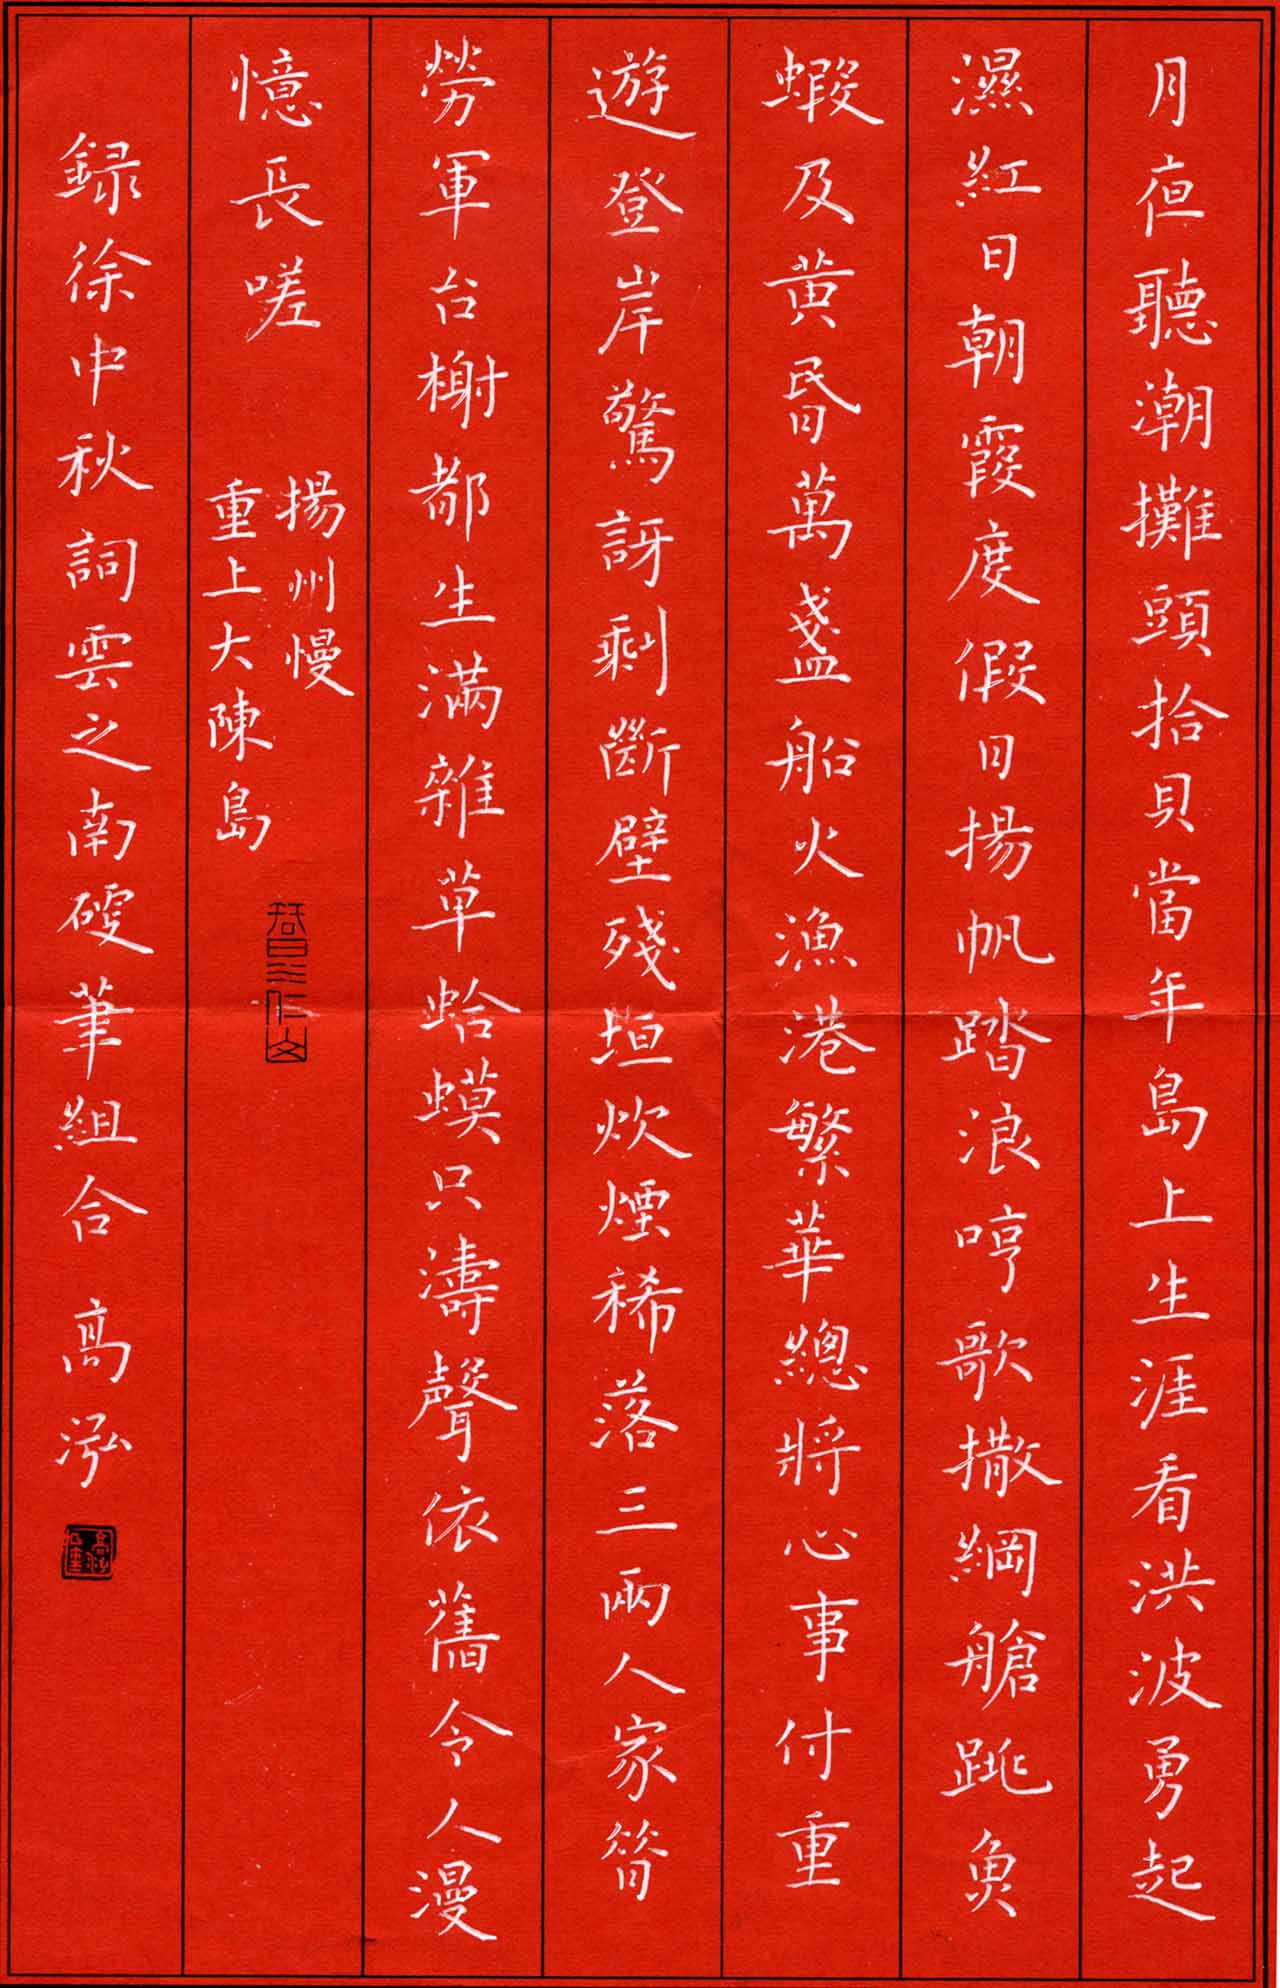 月夜聽潮攤頭拾貝當年島上生涯看洪波勇起
濕紅日朝霞度假日揚帆踏浪哼歌撒網艙跳魚
蝦及黄昏萬盞船火漁港繁華總將心事付重
遊登岸驚訝剩斷壁殘垣炊煙稀落三兩人家昔
勞軍台榭都生滿雜草蛤蟆只濤聲依舊令人漫
憶長嗟
揚州慢
重上大陳島
録徐中秋詞雲之南硬筆組合 高泓